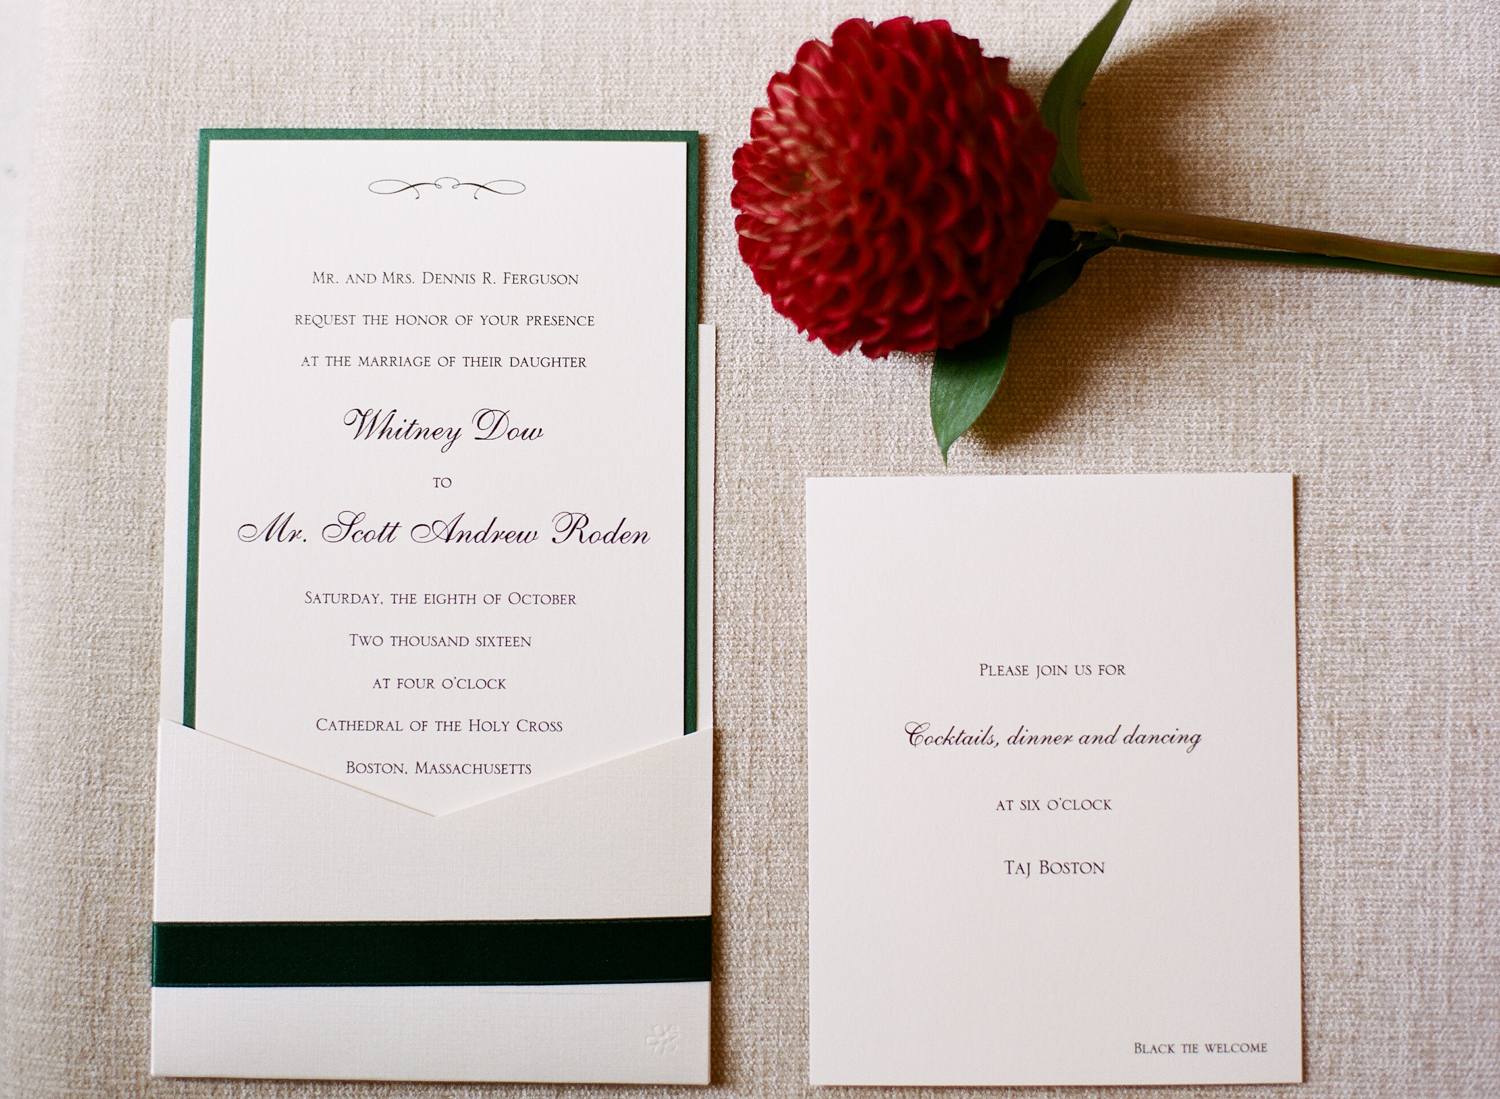 Mr. and Mrs. Dennis R. Ferguson
request the honor of your presence
at the marriage of their daughter
Whitney Dow
to
Mr. Scott Andrew Roden
Saturday, the eighth of October
Two thousand sixteen
at four o'clock
Cathedral of the Holy Cross
Boston, Massachusetts
Please join us for
Cocktails, dinner and dancing
at six o'clock
Taj Boston
Black tie welcome